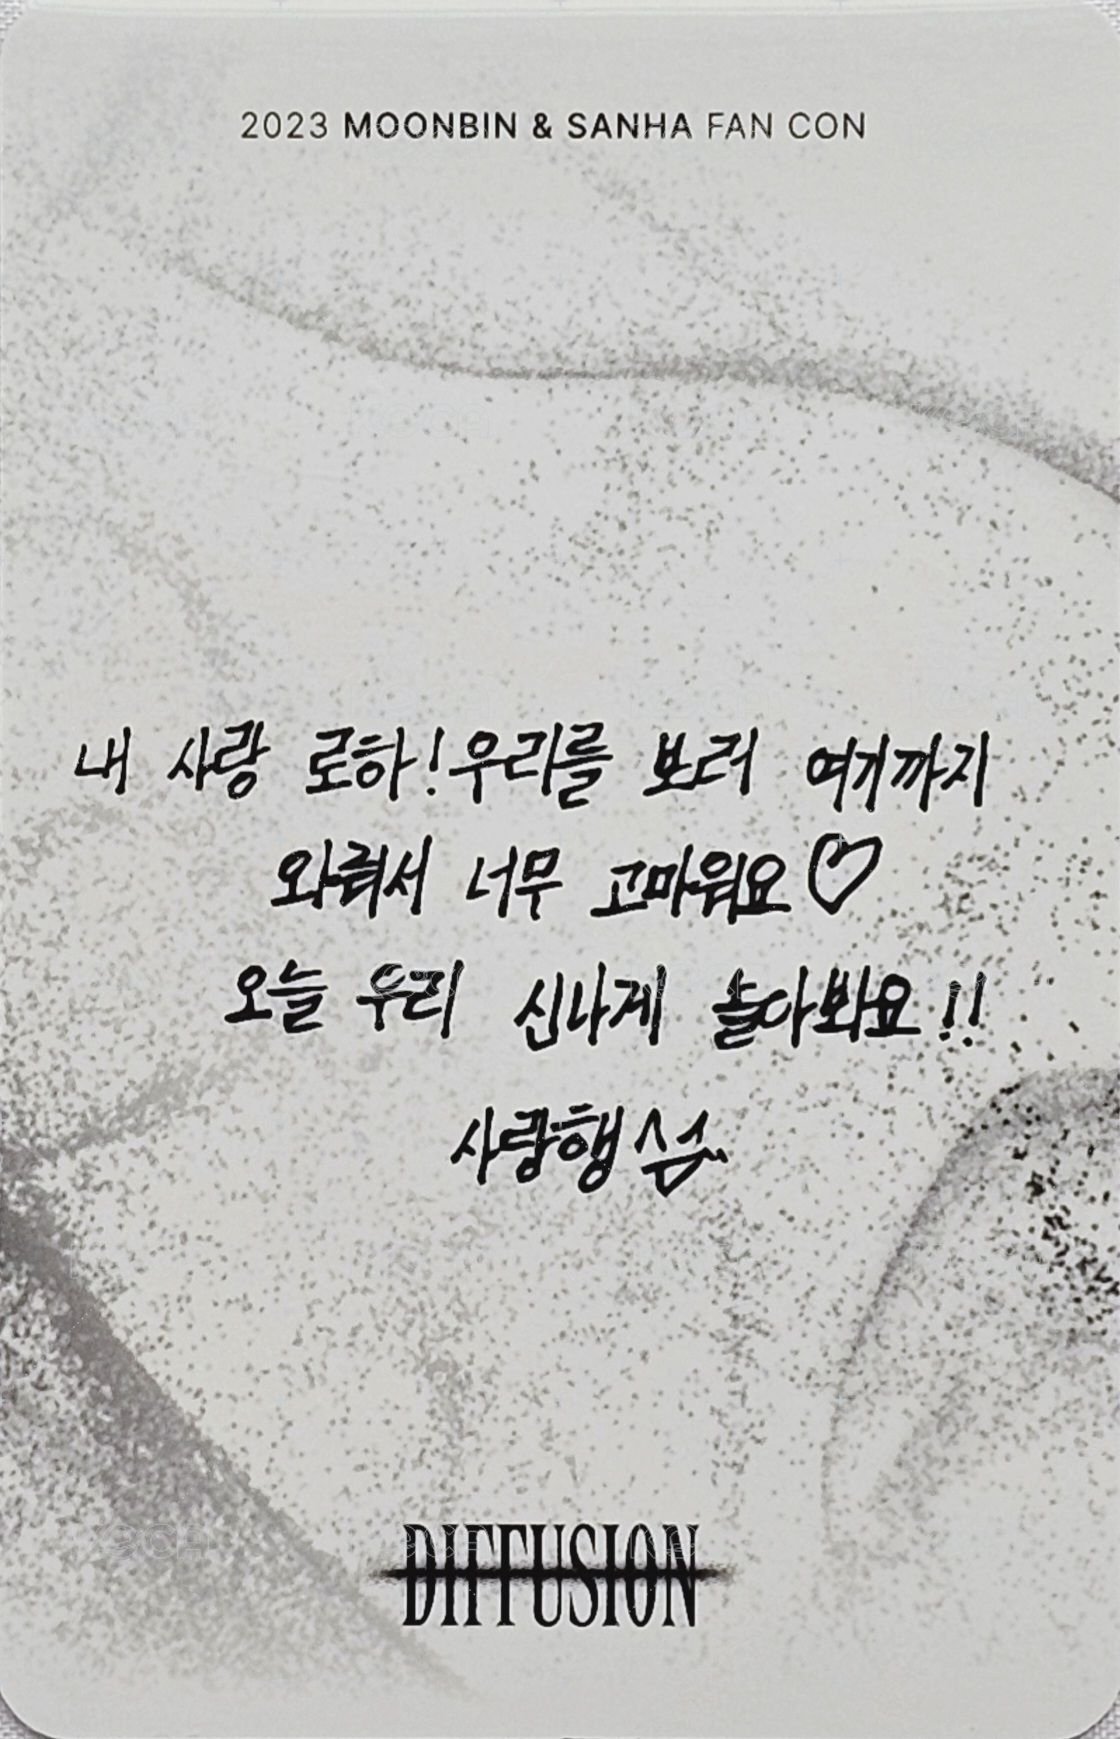 2023 MOONBIN & SANHA FAN CON
내 사랑 로하! 우리를 보러 여기까지
와줘서 너무 고마워요♡
오늘 우리 신나게 놀아봐요!!
사랑행
DIFFUSION